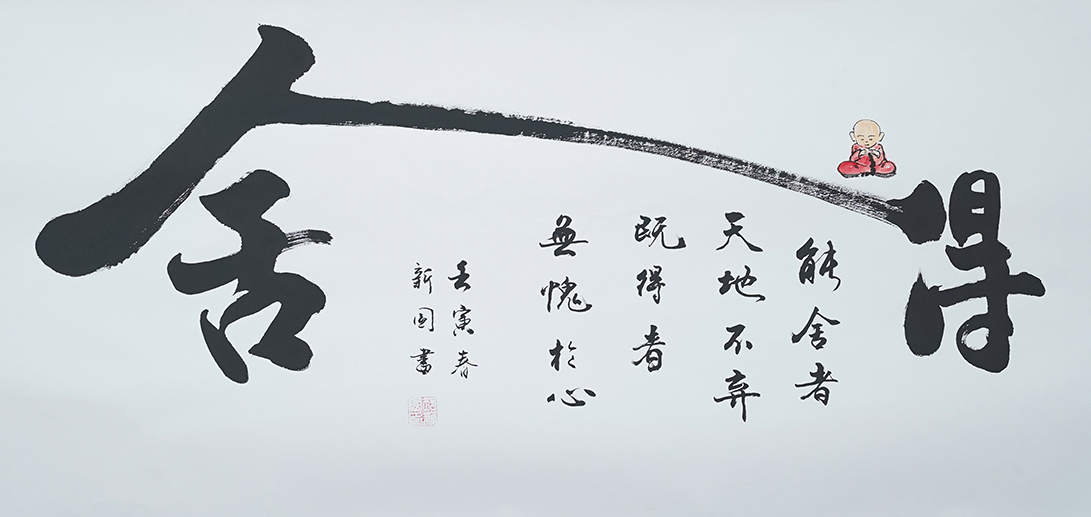 舍得
能舍者
天地不弃
既得者
無愧於心
壬寅春
新国書